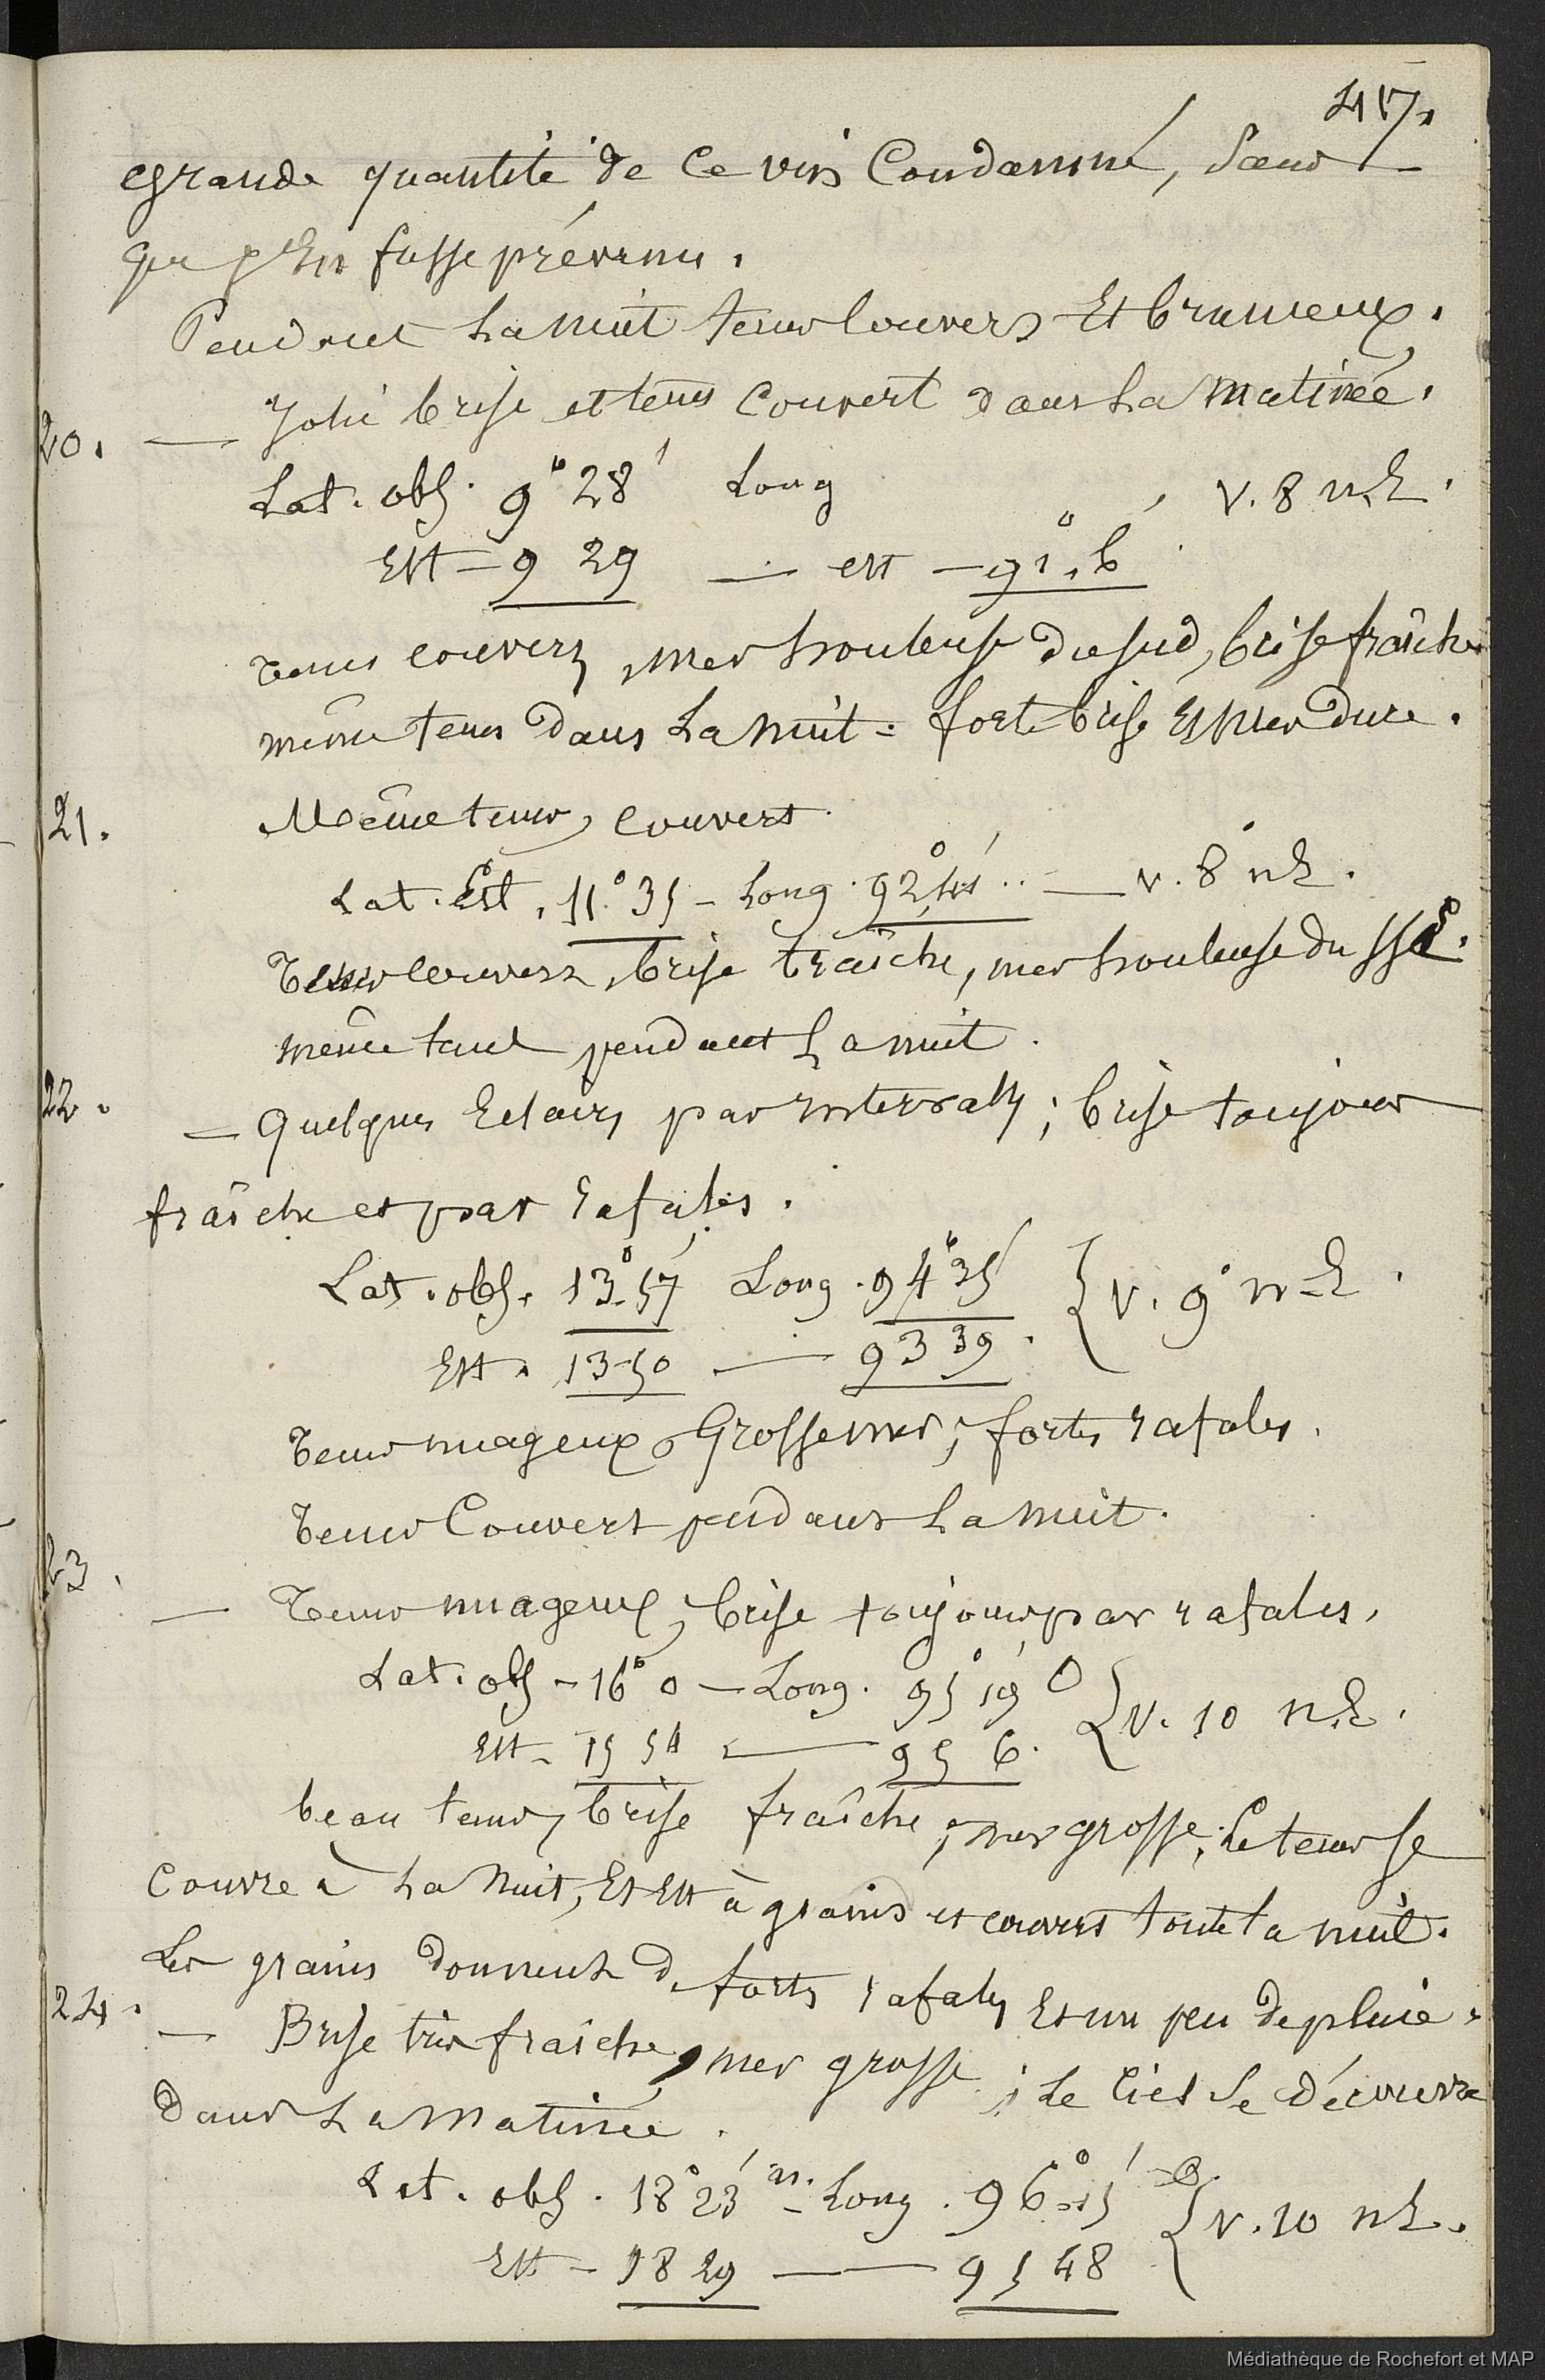 417.
grande quantité de ce vin Condamné, sans
que j'En fusse prévenu.
Pendant La nuit tems Couvers Et brumeux.
20. — Jolie brise et tems Couvert dans La matinée.
Lat. obs. 9° 28' Long V. 8 n.E.
Est - 9 29 — est - 91°. 6'
tems couvers, mer houleuse du sud, brise fraîche
même tems dans La nuit = forte brise Et mer dure.
21. Même tems, couvert.
Lat. Est. 11° 35 - Long. 92°,44' — v. 8 nE.
Tems couvers, brise fraîche, mer houleuse du SSE.
même tems pendant La nuit.
22. — Quelques Eclairs par intervalles; brise toujours
fraîche et par rafales.
Lat. obs. 13° 57' Long. 94° 35' { V. 9 nE.
Est. 13-50 — 93 39.
Tems nuageux, Grosse mer; fortes rafales.
Tems Couvers pendant La nuit.
23. — Tems nuageux, brise toujours par rafales.
Lat. obs - 16° 0 — Long. 95° 19' O { V. 10 n.E.
Est - 15 54 — 95 6.
beau tems, brise fraîche, mer grosse; Le tems se
couvre à La Nuit, Et Est à grains et couvers toute la nuit.
Les grains donnent de fortes rafales Et un peu de pluie.
24. — Brise très fraîche, mer grosse; Le Ciel Se découvre
dans La matinée.
Lat. obs. 18° 23' n. - Long. 96° 15' O. { V. 10 nE.
Est - 18 29 — 95 48
Médiathèque de Rochefort et MAP